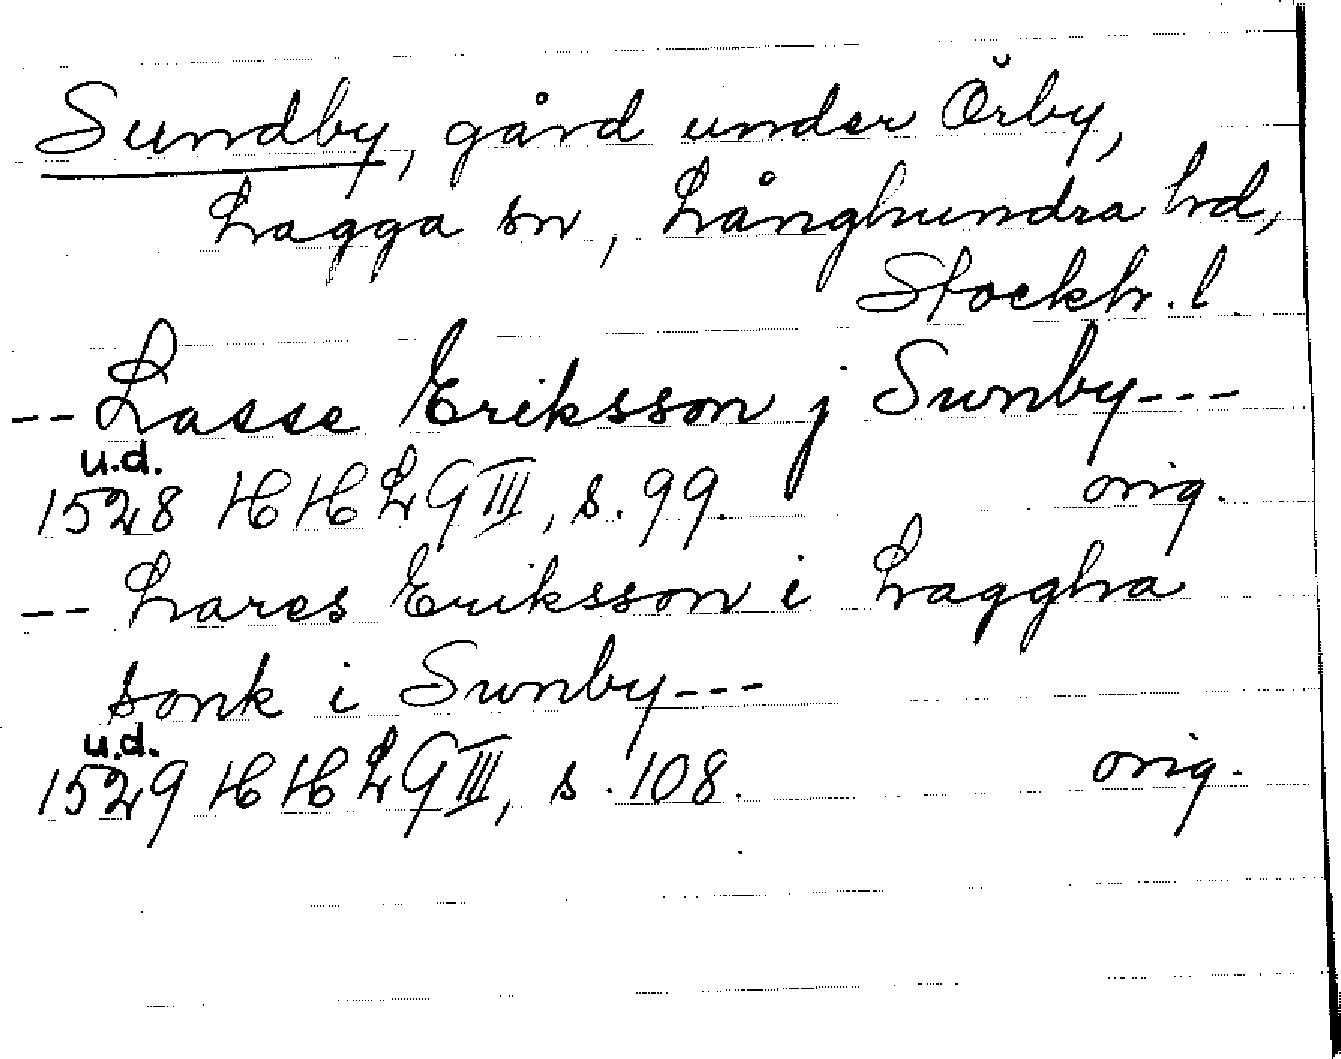 Sundby, gård under Örby,
Lagga sn, Långhundra hd,
Stockh. l.
-- Lasse Eriksson j Sunby---
u.d.
1528 HH LG III, s. 99. orig.
-- Lares Eriksson i Laggha
sonk i Sunby---
u.d.
1529 HH LG III, s. 108. orig.